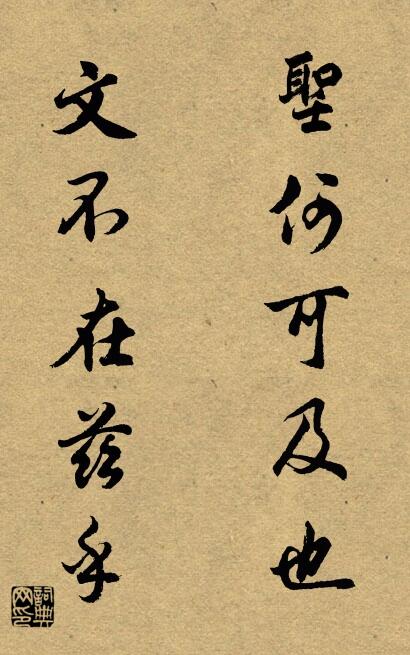 聖何可及也
文不在茲乎
詞典网印